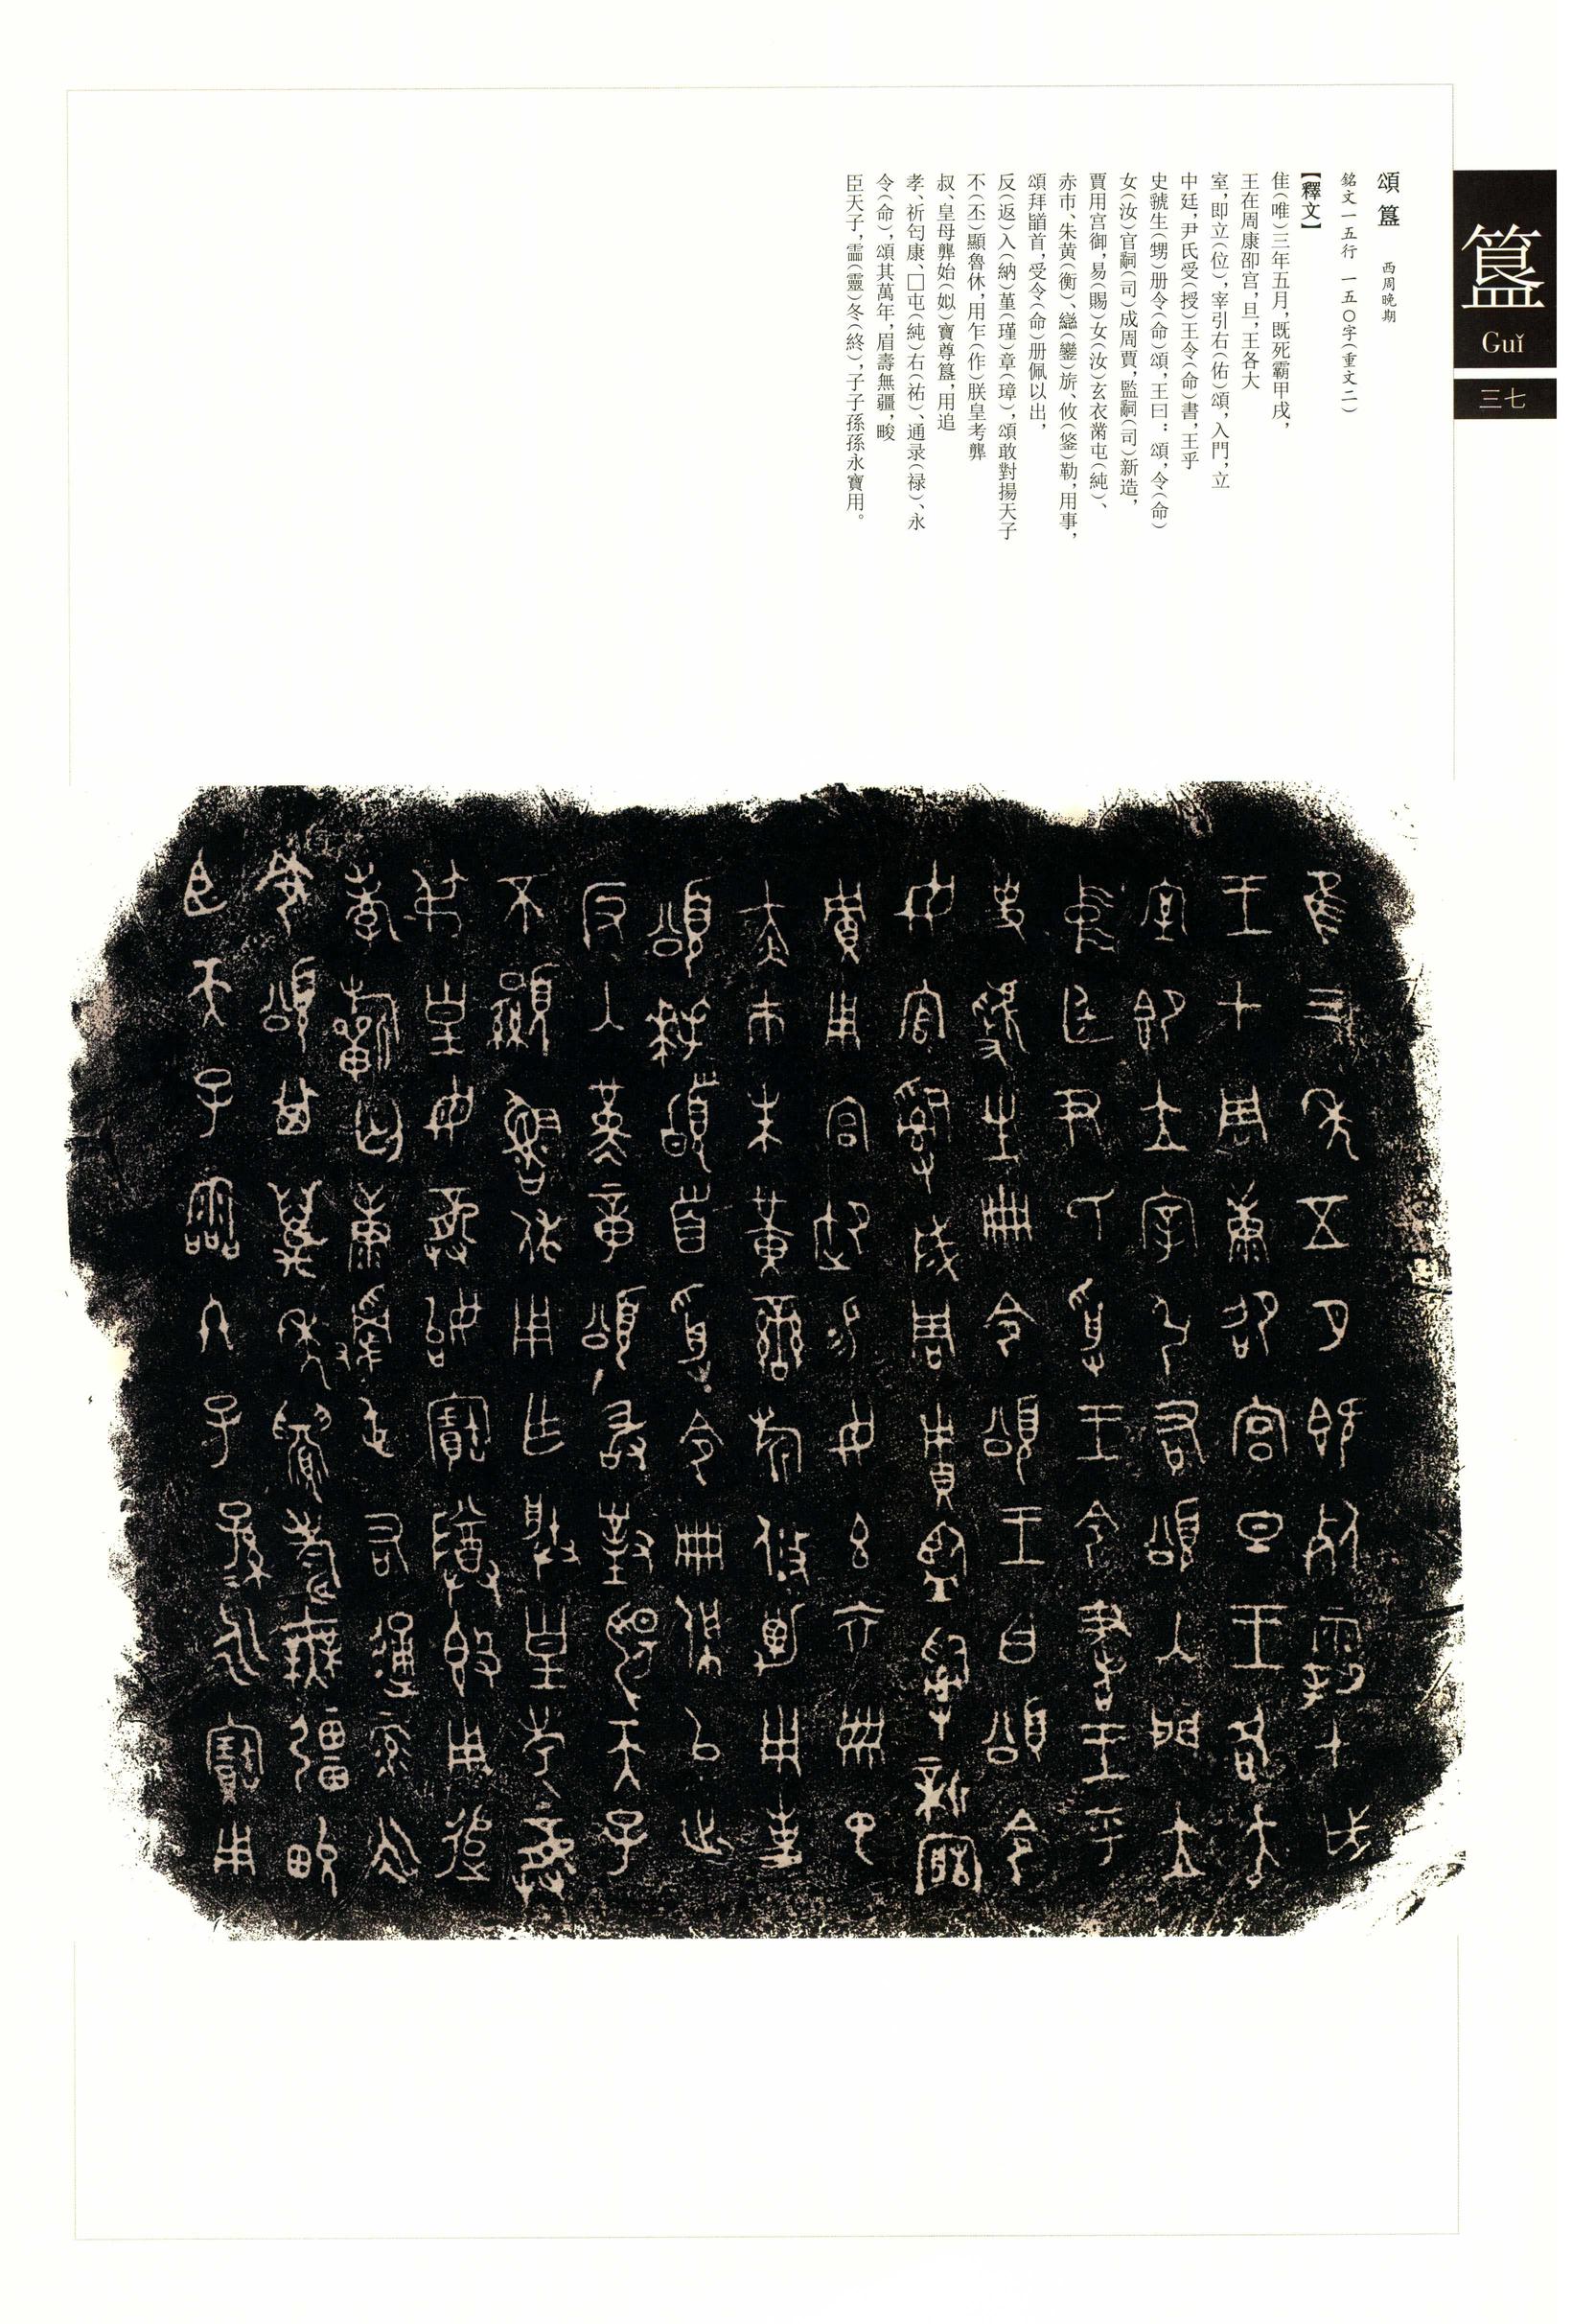 簋
Guǐ
三七
頌簋 西周晚期
銘文一五行 一五〇字(重文二)
【釋文】
隹(唯)三年五月,既死霸甲戌,
王在周康卲宫,旦,王各大
室,即立(位),宰引右(佑)頌,入門,立
中廷,尹氏受(授)王令(命)書,王乎
史虢生(甥)册令(命)頌,王曰:頌,令(命)
女(汝)官嗣(司)成周賈,監嗣(司)新造,
賈用宫御,易(賜)女(汝)玄衣黹屯(純)、
赤巿、朱黄(衡)、䜌(鑾)旂、攸(鋚)勒,用事,
頌拜䭫首,受令(命)册佩以出,
反(返)入(納)堇(瑾)章(璋),頌敢對揚天子
不(丕)顯魯休,用乍(作)朕皇考龏
叔、皇母龏始(姒)寶尊簋,用追
孝、祈匄康、□屯(純)右(祐)、通录(禄)、永
令(命),頌其萬年,眉壽無疆,畯
臣天子,霝(靈)冬(終),子子孫孫永寶用。